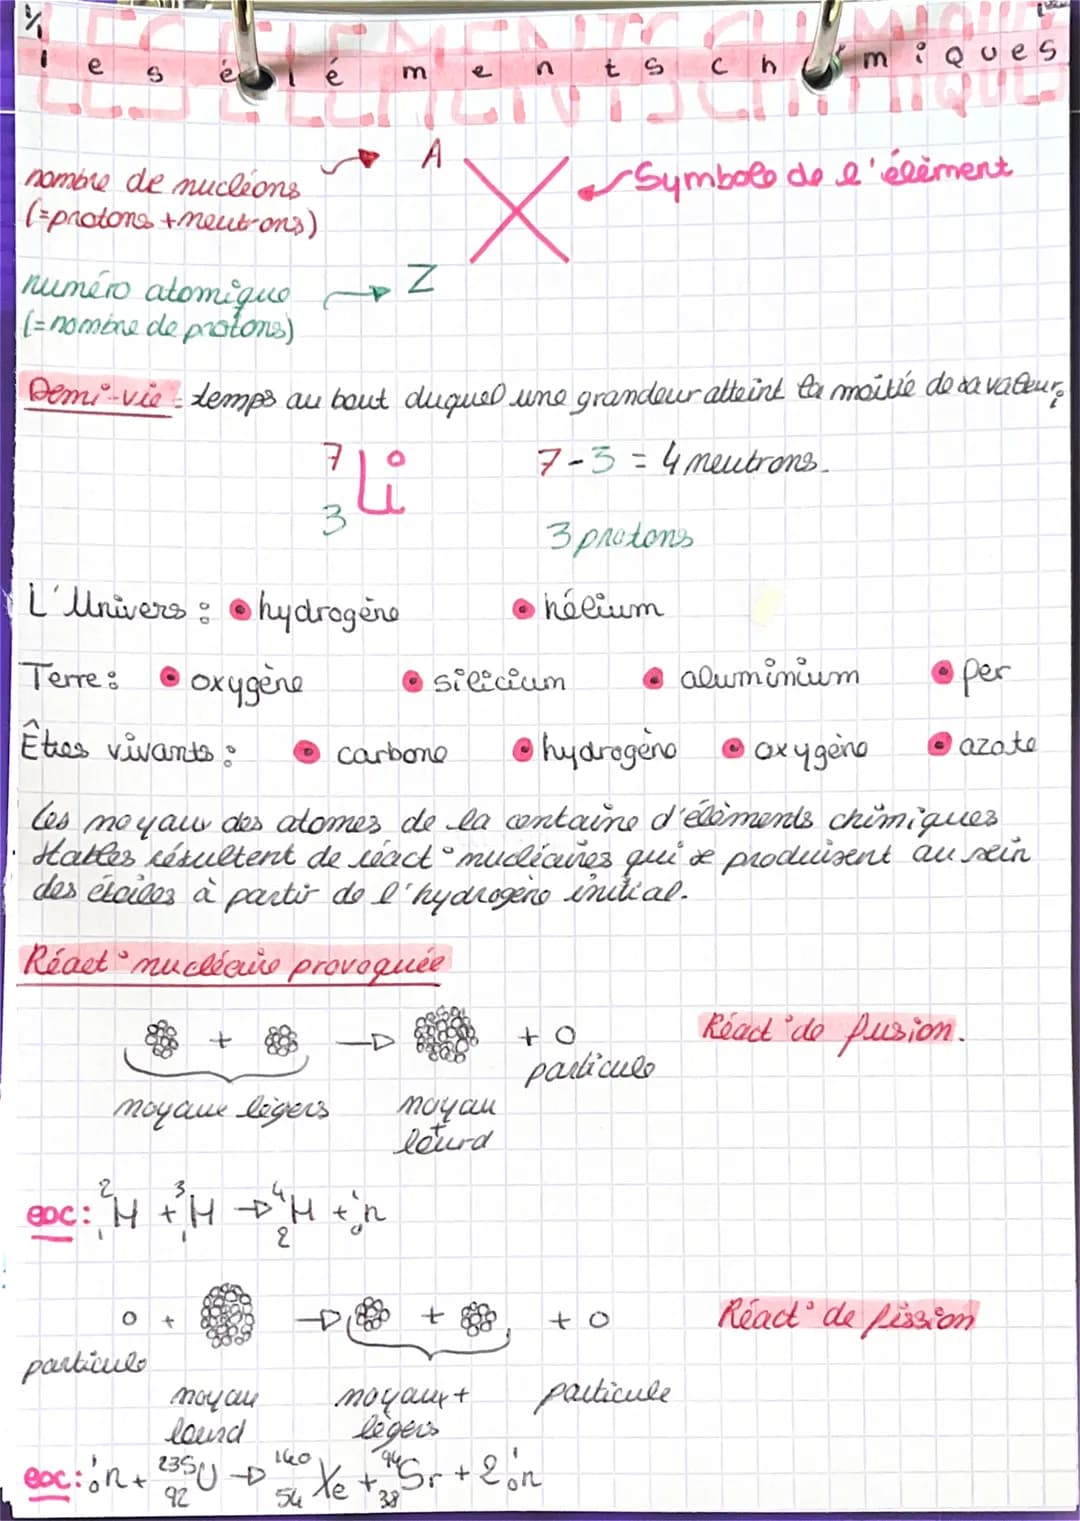 LES ELEMENTS CHIMIQUES
les éléments chimiques
nombre de nucléons
(=protons + neutrons)
A
X
Symbole de l'élément
numéro atomique
(=nombre de protons)
Z
Demi-vie = temps au bout duquel une grandeur atteint la moitié de sa valeur;
7
3
Li
7-3 = 4 neutrons.
3 protons
L'Univers : hydrogène hélium
Terre : oxygène silicium aluminium per
Êtres vivants : carbone hydrogène oxygène azote
Les noyaux des atomes de la centaine d'éléments chimiques
stables résultent de réact° nucléaires qui se produisent au sein
des étoiles à partir de l'hydrogène initial.
Réact° nucléaire provoquée
+ → + o Réact° de fusion.
particule
noyaux légers noyau
+
lourd
ex: ²₁H + ³₁H → ⁴₂H + ¹₀n
o + → + + o Réact° de fission
particule
noyau noyaux + particule
lourd légers
ex: ¹₀n + ²³⁵₉₂U → ¹⁴⁰₅₄Xe + ⁹⁴₃₈Sr + 2 ¹₀n